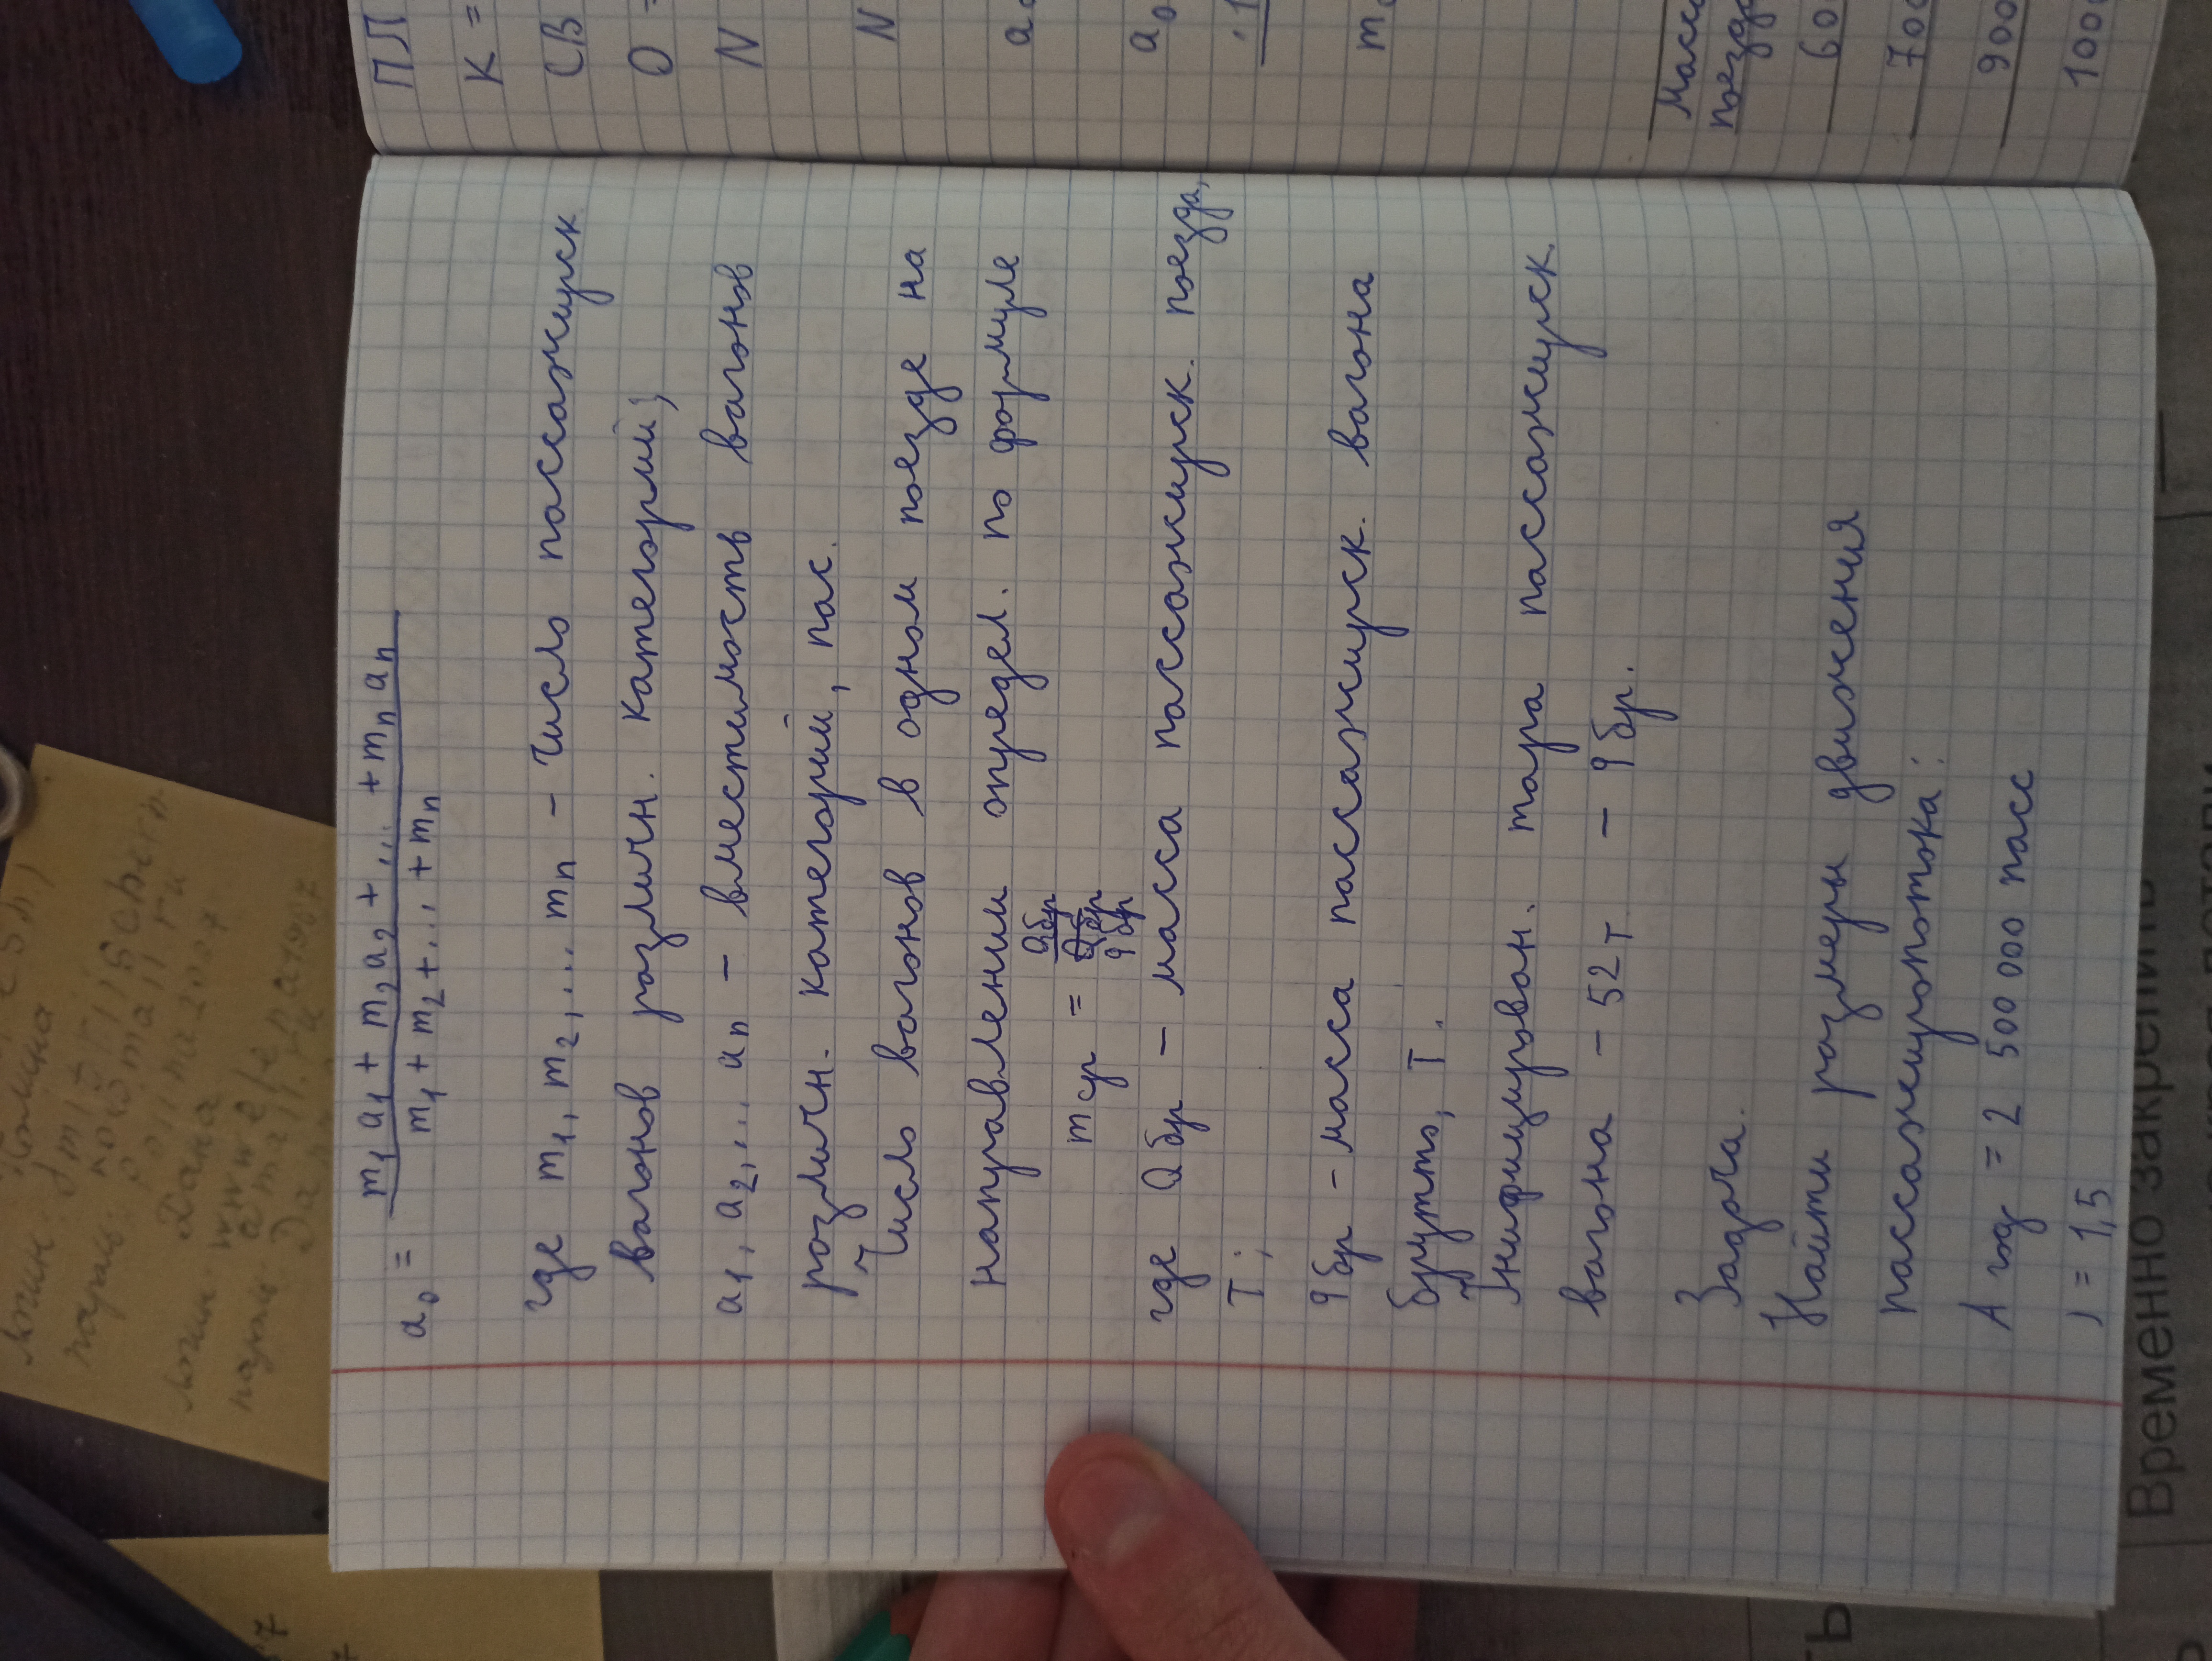 a₀ = (m₁a₁ + m₂a₂ + ... + mₙaₙ) / (m₁ + m₂ + ... + mₙ)
где m₁, m₂, ... mₙ – число пассажирск
вагонов различн. категорий;
a₁, a₂, ... aₙ – вместимость вагонов
различн. категорий, пас.
Число вагонов в одном поезде на
направлении определ. по формуле
m ср = Q бр / q бр
где Q бр – масса пассажирск. поезда,
т;
q бр – масса пассажирск. вагона
брутто, т.
Унифицирован. тара пассажирск.
вагона – 52 т – q бр.
Задача.
Найти размеры движения
пассажиропотока:
A год = 2 500 000 пасс
= 1,5
ПЛ
К =
СВ
О =
N
N
a
a₀
m
Масса
поезда
60
700
900
1000
Временно закрепить